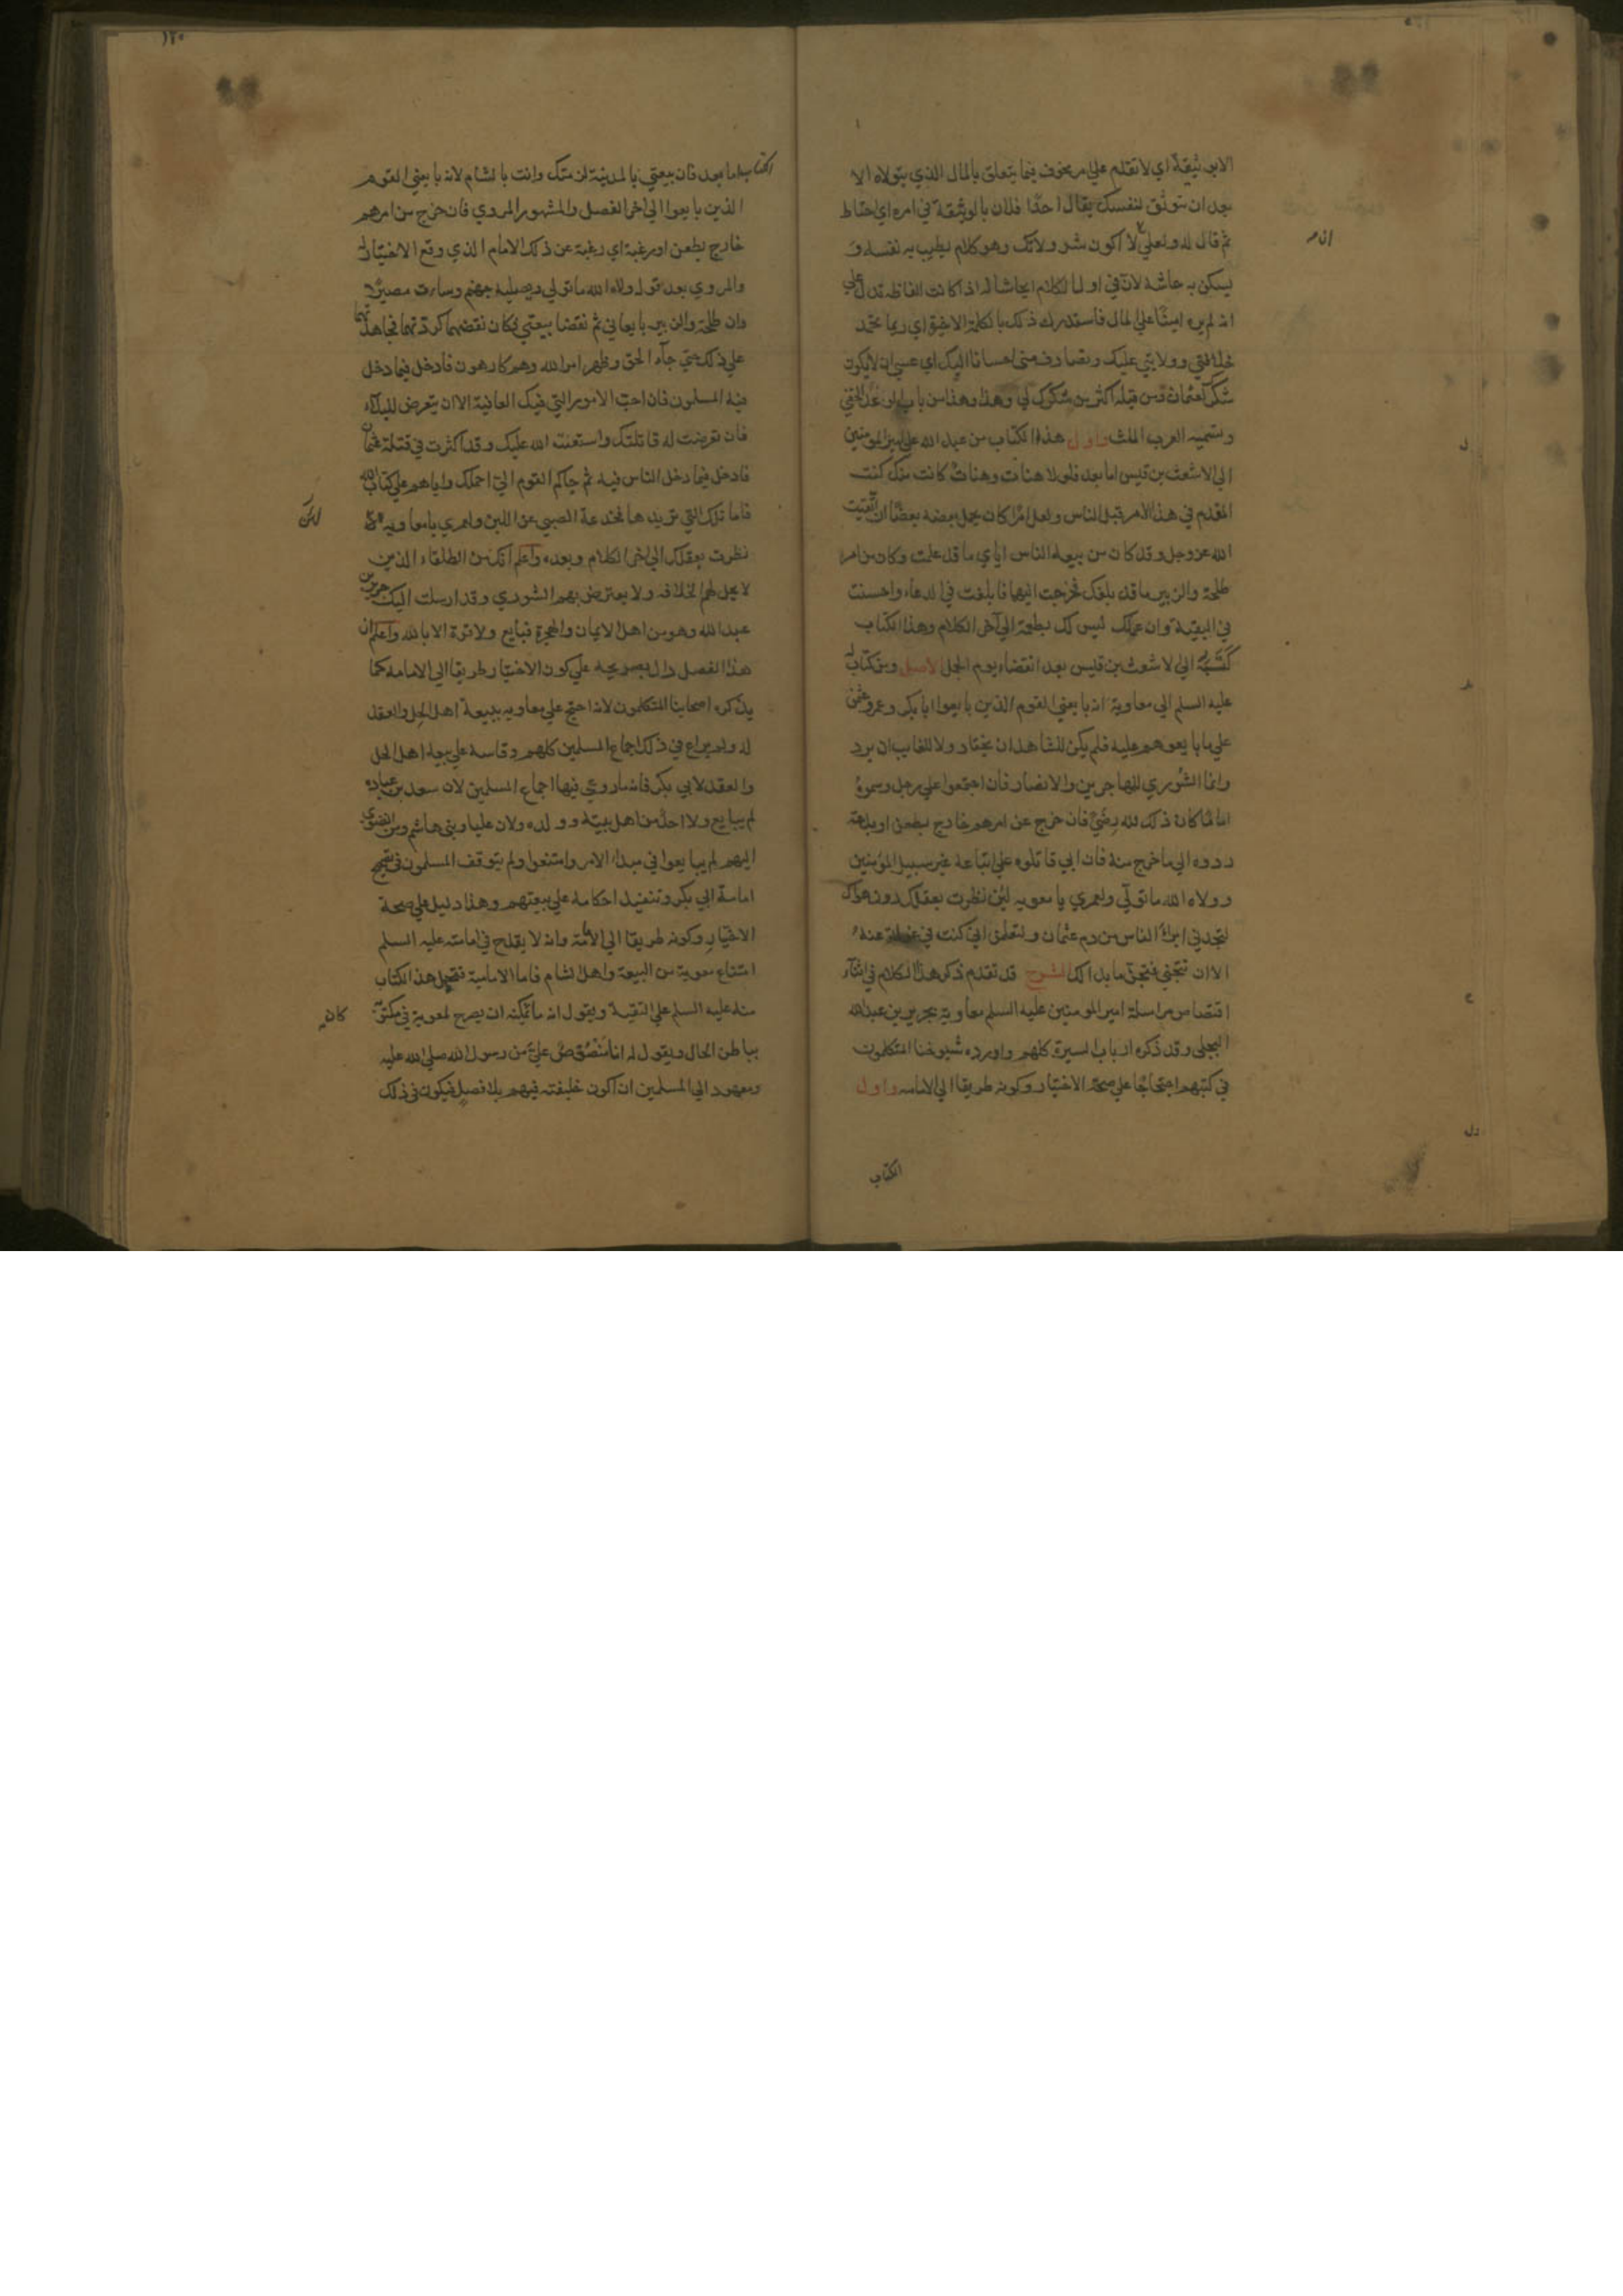 الا بوثيقة اي لا تقدم علي امر مخوف فيما يتعلق بالمال الذي يتولاه الا
بعد ان تتوثق لنفسك يقال اخذ فلان بالوثيقة في امره اي احتاط
ثم قال له ولعلي لا اكون شر ولاتك وهو كلام يطيب به نفسه و
يسكن به جاشه لان في اول الكلام ايحاشا له اذ كانت الفاظه تدل علي
انه لم يره امينا علي المال فاستدرك ذلك بالكلمة الاخيرة اي ربما تحمد
خلافتي وولايتي عليك وتصادف مني احسانا اليك اي عسي ان لا يكون
شكرك لعثمان ومن قبله اكثر من شكرك لي وهذا من باب الوعد الخفي
وتسميه العرب الملث واول هذا الكتاب من عبد الله علي امير المومنين
الي الاشعث بن قيس اما بعد فلولا هنات وهنات كانت منك كنت
المقدم في هذا الامر قبل الناس ولعل امرا كان يحمل بعضه بعضا ان اتقيت
الله عز وجل وقد كان من بيعة الناس اياي ما قد علمت وكان من امر
طلحة والزبير ما قد بلغك فخرجت اليهما فابلغت في الدعاء واحسنت
في البقية وان عملك ليس لك بطعمة الي آخر الكلام وهذا الكتاب
كتبه الي الاشعث بن قيس بعد انقضاء يوم الجمل الاصل ومن كتاب له
عليه السلم الي معاوية انه بايعني القوم الذين بايعوا ابا بكر وعمر وعثمن
علي ما بايعوهم عليه فلم يكن للشاهد ان يختار ولا للغايب ان يرد
وانما الشوري للمهاجرين والانصار فان اجتمعوا علي رجل وسموه
اماما كان ذلك لله رضي فان خرج عن امرهم خارج بطعن او بدعة
ردوه الي ما خرج منه فان ابي قاتلوه علي اتباعه غير سبيل المؤمنين
وولاه الله ما تولي ولعمري يا معوية لئن نظرت بعقلك دون هواك
لتجدني ابرأ الناس من دم عثمان ولتعلمن اني كنت في عزلة عنه
الا ان تتجني فتجن ما بدا لك الشرح قد تقدم ذكر هذا الكلام في اثناء
اقتصاص مراسلة امير المومنين عليه السلم معاوية بجرير بن عبد الله
البجلي وقد ذكره ارباب السيرة كلهم واورده شيوخنا المتكلمون
في كتبهم احتجاجا علي صحة الاختيار وكونه طريقا الي الامامة واول
الكتاب
الكتاب اما بعد فان بيعتي بالمدينة لزمتك وانت بالشام لانه بايعني القوم
الذين بايعوا الي اخر الفصل والمشهور المروي فان خرج من امرهم
خارج بطعن او رغبة اي رغبة عن ذلك الامام الذي وقع الاختيار له
والمروي بعد قوله ولاه الله ما تولي ويصليه جهنم وساءت مصيرا
وان طلحة والزبير بايعاني ثم نقضا بيعتي فكان نقضهما كردتهما فجاهدتهما
علي ذلك حتي جآء الحق وظهر امر الله وهم كارهون فادخل فيما دخل
فيه المسلمون فان احب الامور التي فيك العافية الا ان تتعرض للبلاء
فان تعرضت له قاتلتك واستعنت الله عليك وقد اكثرت في قتلة عثمان
فادخل فيما دخل الناس فيه ثم حاكم القوم الي احملك واياهم علي كتاب الله
فاما تلك التي تريدها فخدعة الصبي عن اللبن ولعمري يا معاوية لئن
نظرت بعقلك الي اخر الكلام وبعده واعلم انك من الطلقاء الذين
لا يحل لهم الخلافة ولا يعترض بهم الشوري وقد ارسلت اليك جرير بن
عبد الله وهو من اهل الايمان والهجرة فبايع ولا قوة الا بالله واعلم ان
هذا الفصل دال بصريحه علي كون الاختيار طريقا الي الامامة كما
يذكره اصحابنا المتكلمون لانه احتج علي معاوية ببيعة اهل الحل والعقد
له ولم يراع في ذلك اجماع المسلمين كلهم وقاسه علي بيعة اهل الحل
والعقد لابي بكر فانه ما روعي فيها اجماع المسلمين لان سعد بن عبادة
لم يبايع ولا احد من اهل بيته وولده ولان عليا وبني هاشم ومن انضوي
اليهم لم يبايعوا في مبدا الامر وامتنعوا ولم يتوقف المسلمون في تصحيح
امامة ابي بكر وتنفيذ احكامه علي بيعتهم وهذا دليل علي صحة
الاختيار وكونه طريقا الي الامامة وانه لا يقدح في امامته عليه السلم
امتناع معوية من البيعة واهل الشام فاما الامامية فتحمل هذا الكتاب
منه عليه السلم علي التقية ويقول انه ما كان يمكنه ان يصرح لمعوية في مكتوبه
بباطن الحال ويقول له انا منصوص علي من رسول الله صلي الله عليه
ومعهود الي المسلمين ان اكون خليفته فيهم بلا فصل فيكون في ذلك